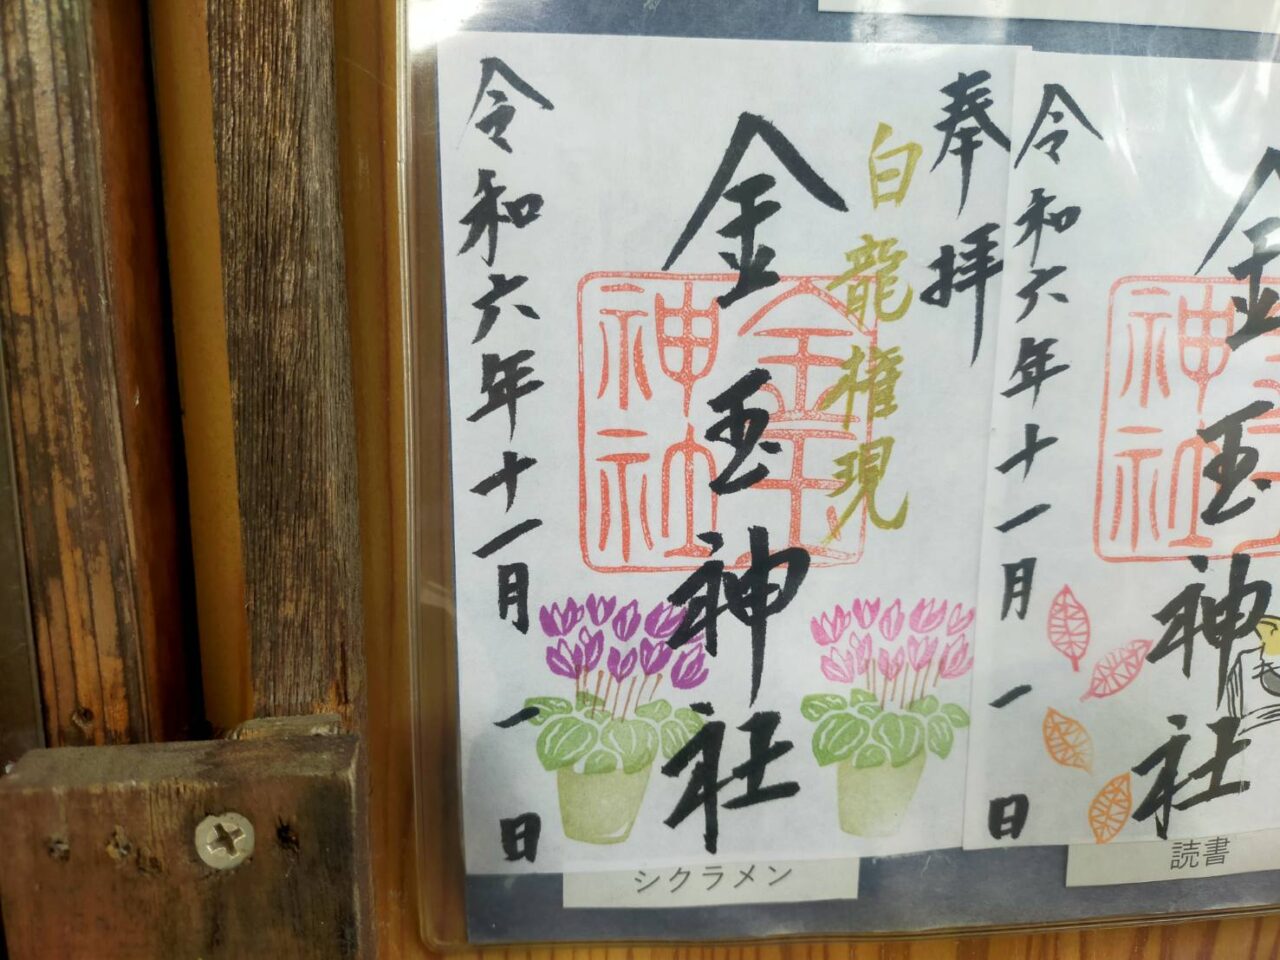 奉拝
白龍権現
金玉神社
金玉神社
令和六年十一月一日
シクラメン
金玉神社
令和六年十一月一日
読書